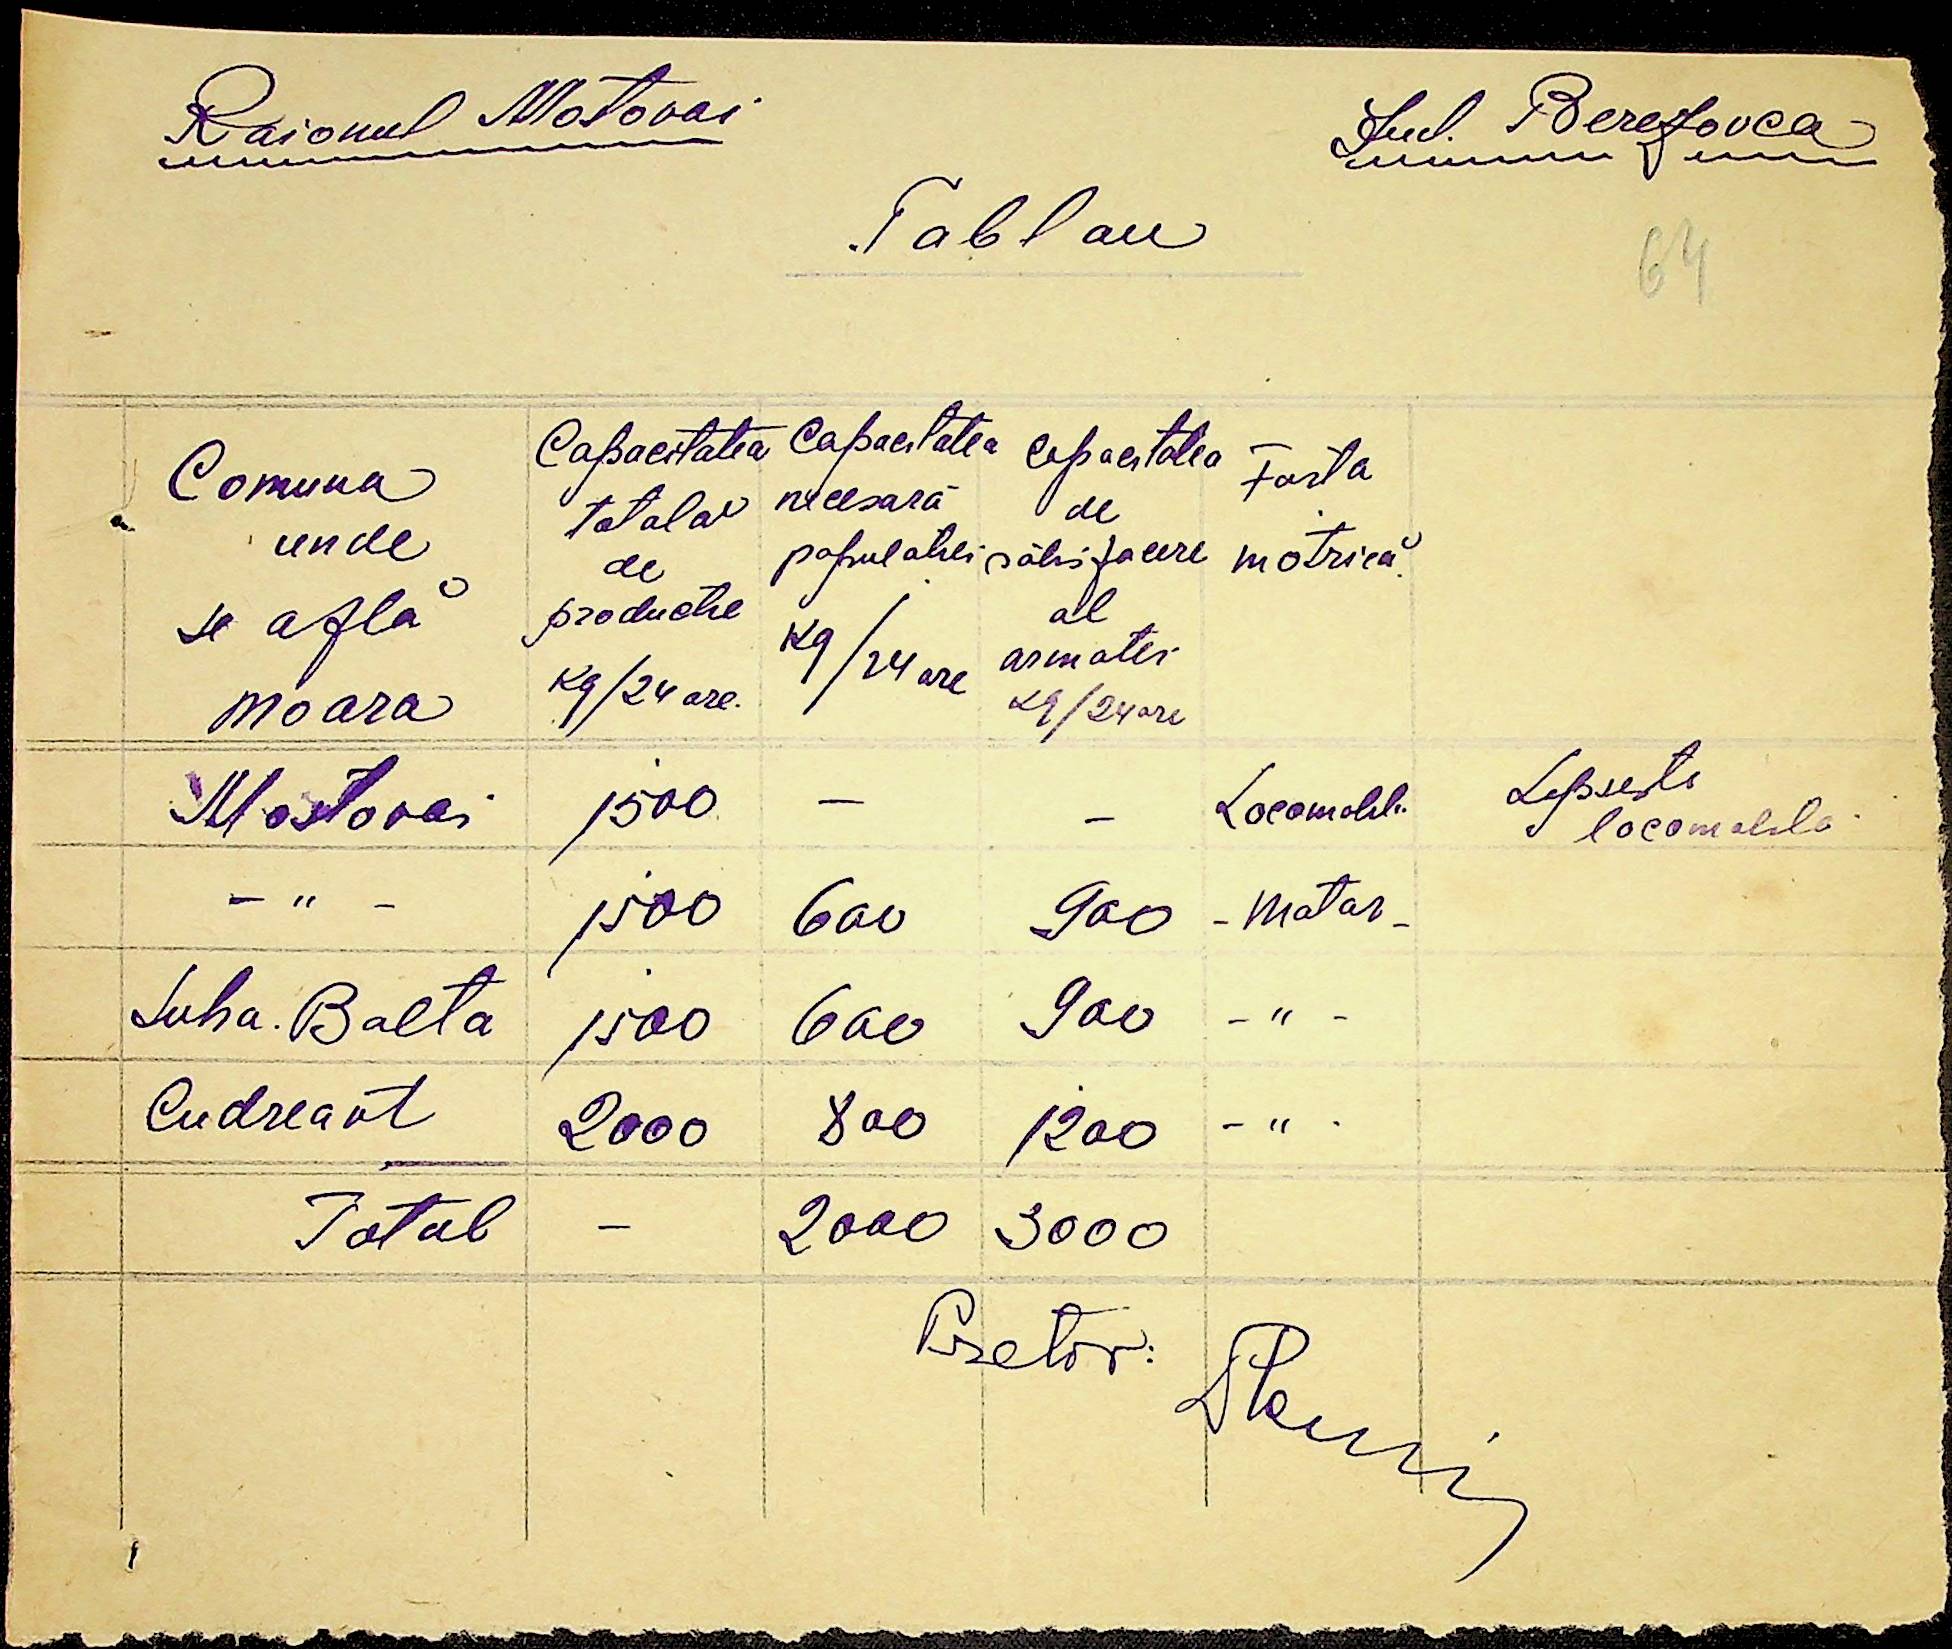 Raionul Mostovoi Jud. Berezovca
Tablau
64
Comuna unde se află moara | Capacitatea totală de productie Kg/24 ore. | Capacitatea necesară populatiei Kg/24 ore | Capacitatea de satisfacere al armatei Kg/24 ore | Forta motrică.
Mostovoi 1500 — — Locomobil Lipseste locomobila
- " - 1500 600 900 - Motor -
Suha. Balta 1500 600 900 - " -
Cudreavt 2000 800 1200 - " -
Total — 2000 3000
Pretor: